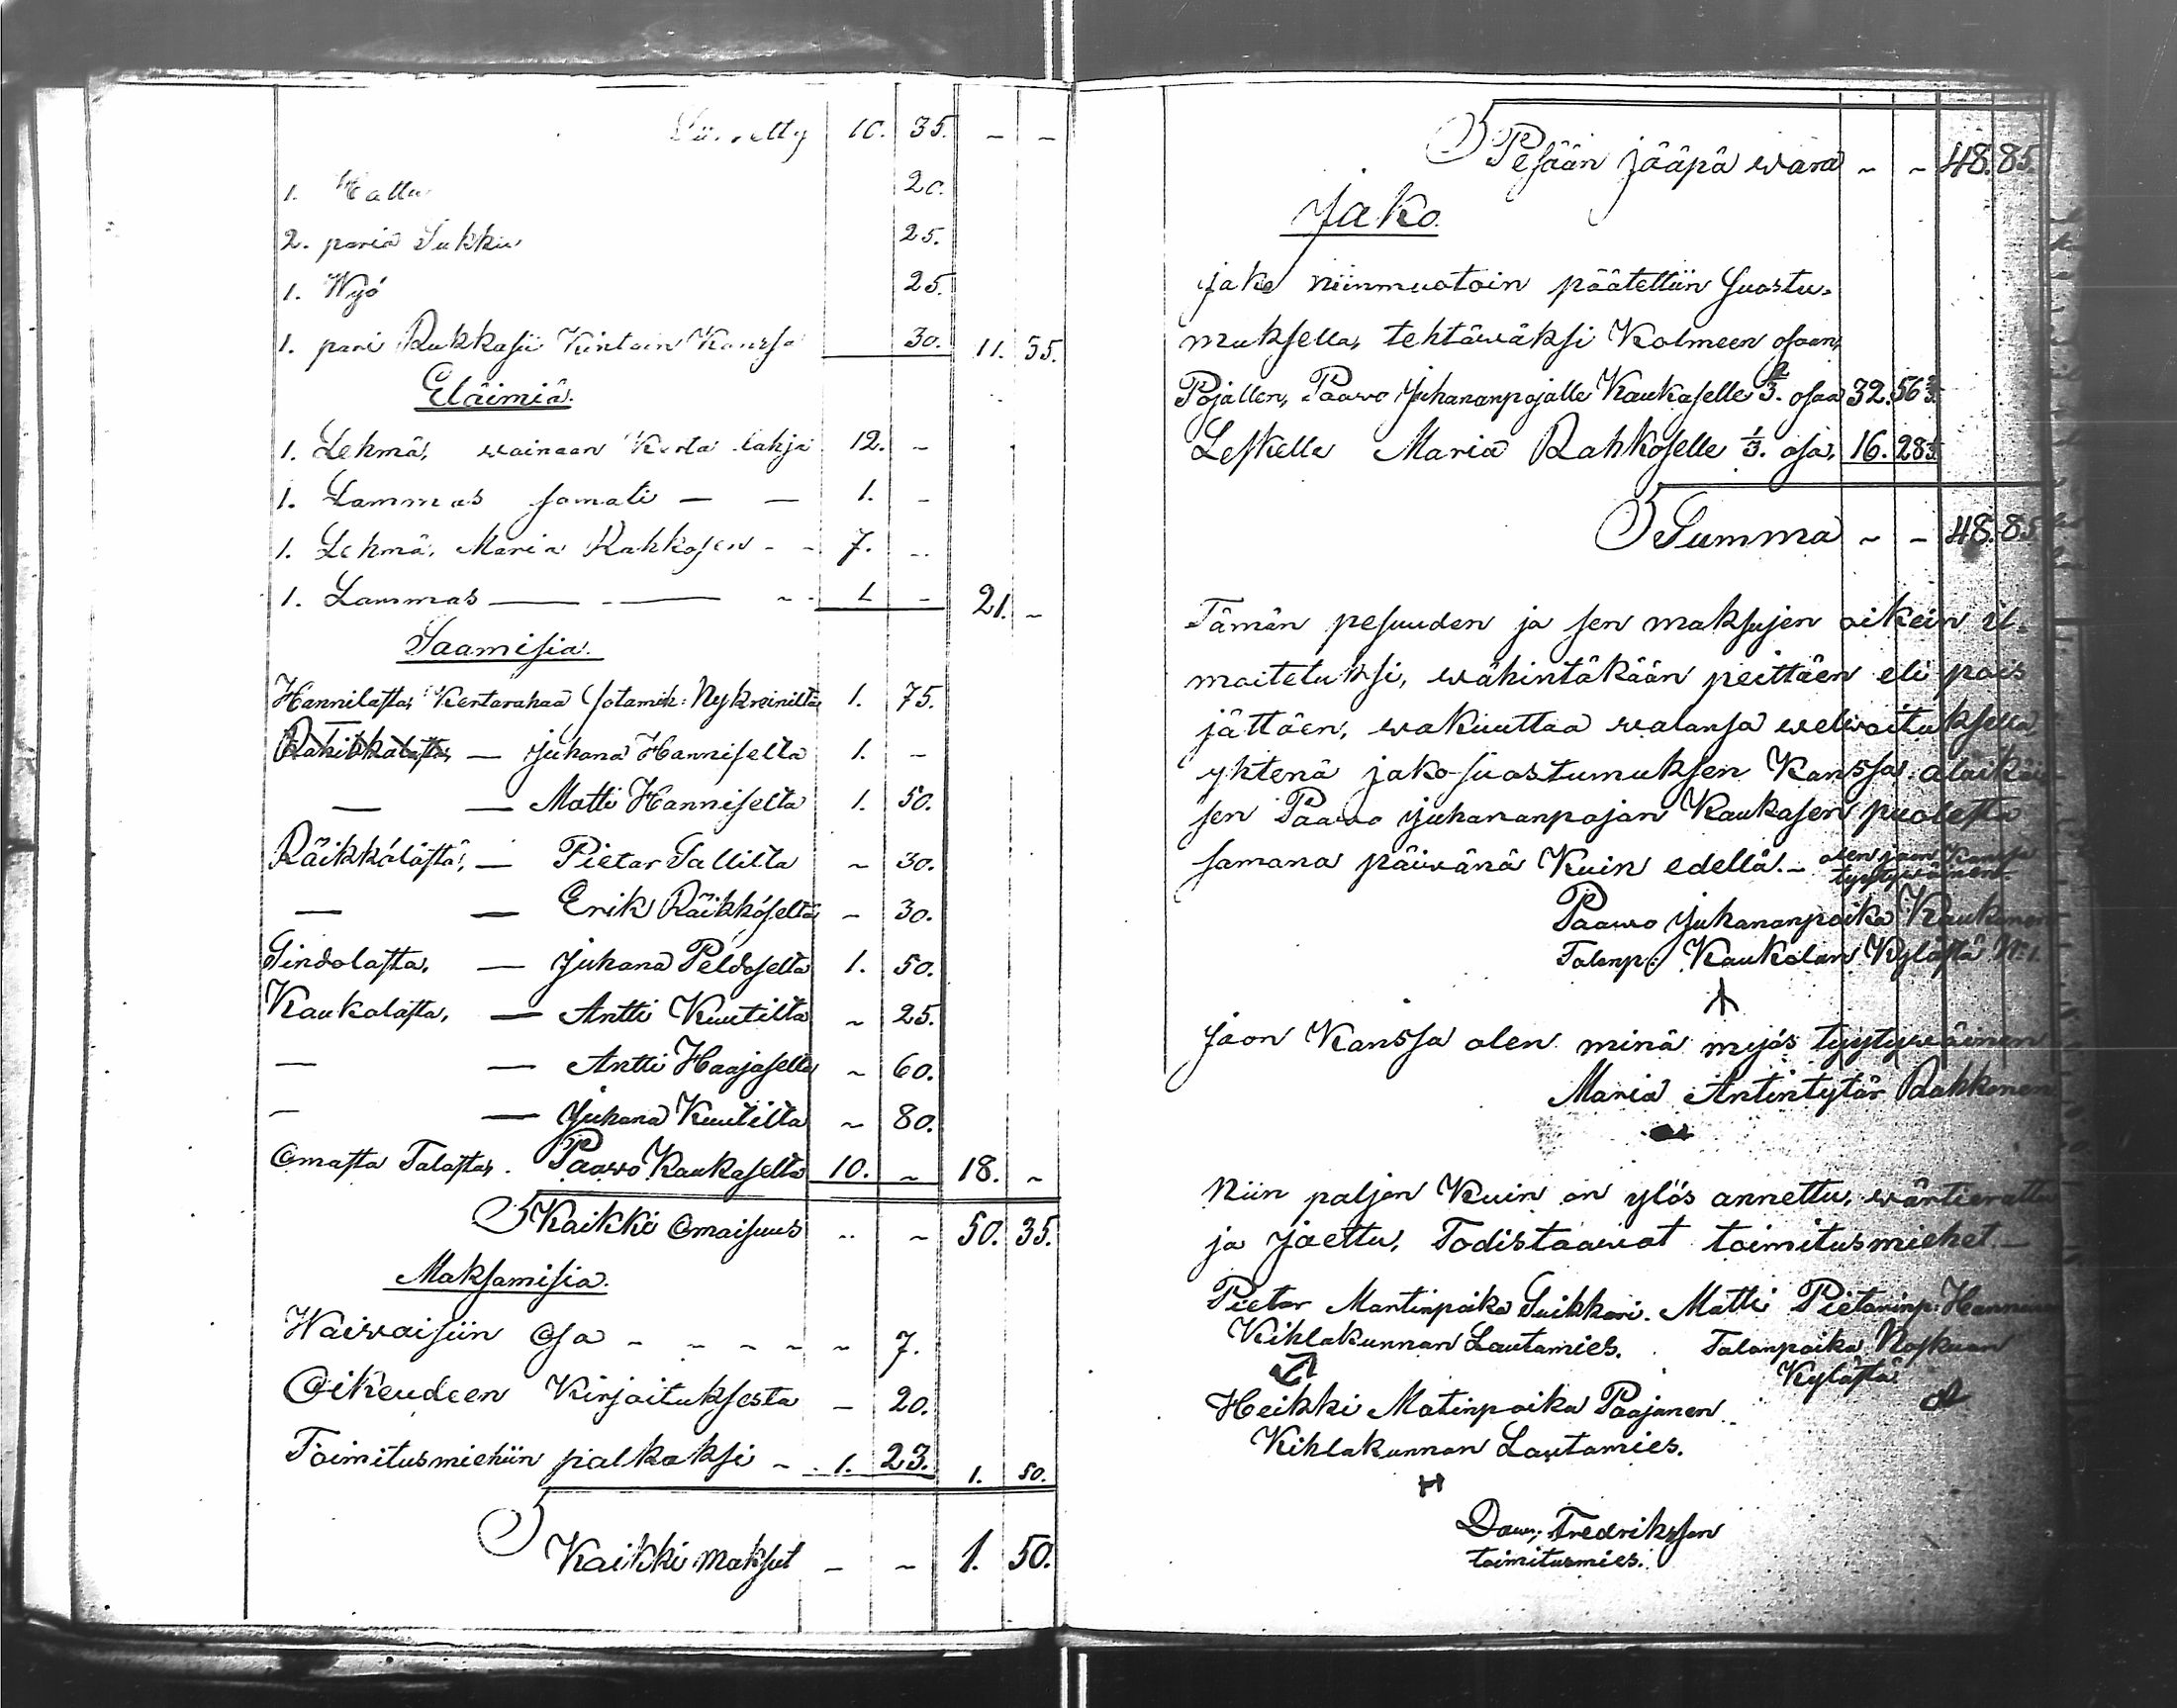 Siirretty 10. 35. - -
1. Hattu 20.
2. paria Sukkia 25.
1. Wyö 25.
1. pari Rukkasii Kintain Kanssa 30. 11. 35.
Eläimiä.
1. Lehmä, wainaan Kerta lahja 12. -
1. Lammas samati — — 1. -
1. Lehmä, Maria Rahkosen - - 7. -
1. Lammas — — - 1. - 21. -
Saamisia.
Hannilasta, Kertarahaa Sotamik: Nykreinilta 1. 75.
— Juhana Hanniselta 1. -
— — Matti Hanniselta 1. 50.
Räikkölästä, — Pietar Tallilta ~ 30.
— — Erik Räikköseltä - 30.
Sindolasta, — Juhana Peldoselta 1. 50.
Kaukolasta, — Antti Kuutilta ~ 25.
— — Antti Haajaselta ~ 60.
— — Juhana Kuutilta ~ 80.
Omasta Talosta, Paawo Kaukaselta 10. ~ 18. ~
S Kaikki Omaisuus - ~ 50. 35.
Maksamisia.
Waiwaisiin Osa - - - - ~ 7.
Oikeudeen Kirjoituksesta - 20.
Toimitusmiehiin palkaksi - 1. 23. 1. 50.
S Kaikki maksut - ~ 1. 50.
S Pesään jääpä wara ~ ~ 48. 85.
Jako.
Jako niinmuotoin päätettiin Suostu-
muksella, tehtäwäksi Kolmeen osaan,
Pojallen, Paawo Juhananpojalle Kaukaselle 2/3. osaa 32. 56 2/3.
Leskelle Maria Rahkoselle 1/3. osa, 16. 28 1/3.
S Summa ~ - 48. 85
Tämän pesuuden ja sen maksujen oikein il-
moitetuksi, wähintäkään peittäen eli pois
jättäen, wakuuttaa walansa welwoituksella
yhtenä jako-suostumuksen Kanssa alaikäi-
sen Paawo Juhananpojan Kaukasen puolesta
samana päiwänä Kuin edellä. - olen jaon Kanssa
tyytywäinen
Paawo Juhananpoika Kaukonen
Talonp: Kaukolan Kylästä No 1.
Jaon Kanssa olen minä myös tyytywäinen
Maria Antintytär Rahkonen
Niin paljon Kuin on ylös annettu, wärtierattu
ja jaettu, Todistaawat toimitusmiehet. -
Pietar Martinpoika Suikkari. Matti Pietarinp:
Kihlakunnan Lautamies. Talonpoika
Kylästä
Heikki Matinpoika Paajanen
Kihlakunnan Lautamies.
H
Daw. Fredriksson
toimitusmies.